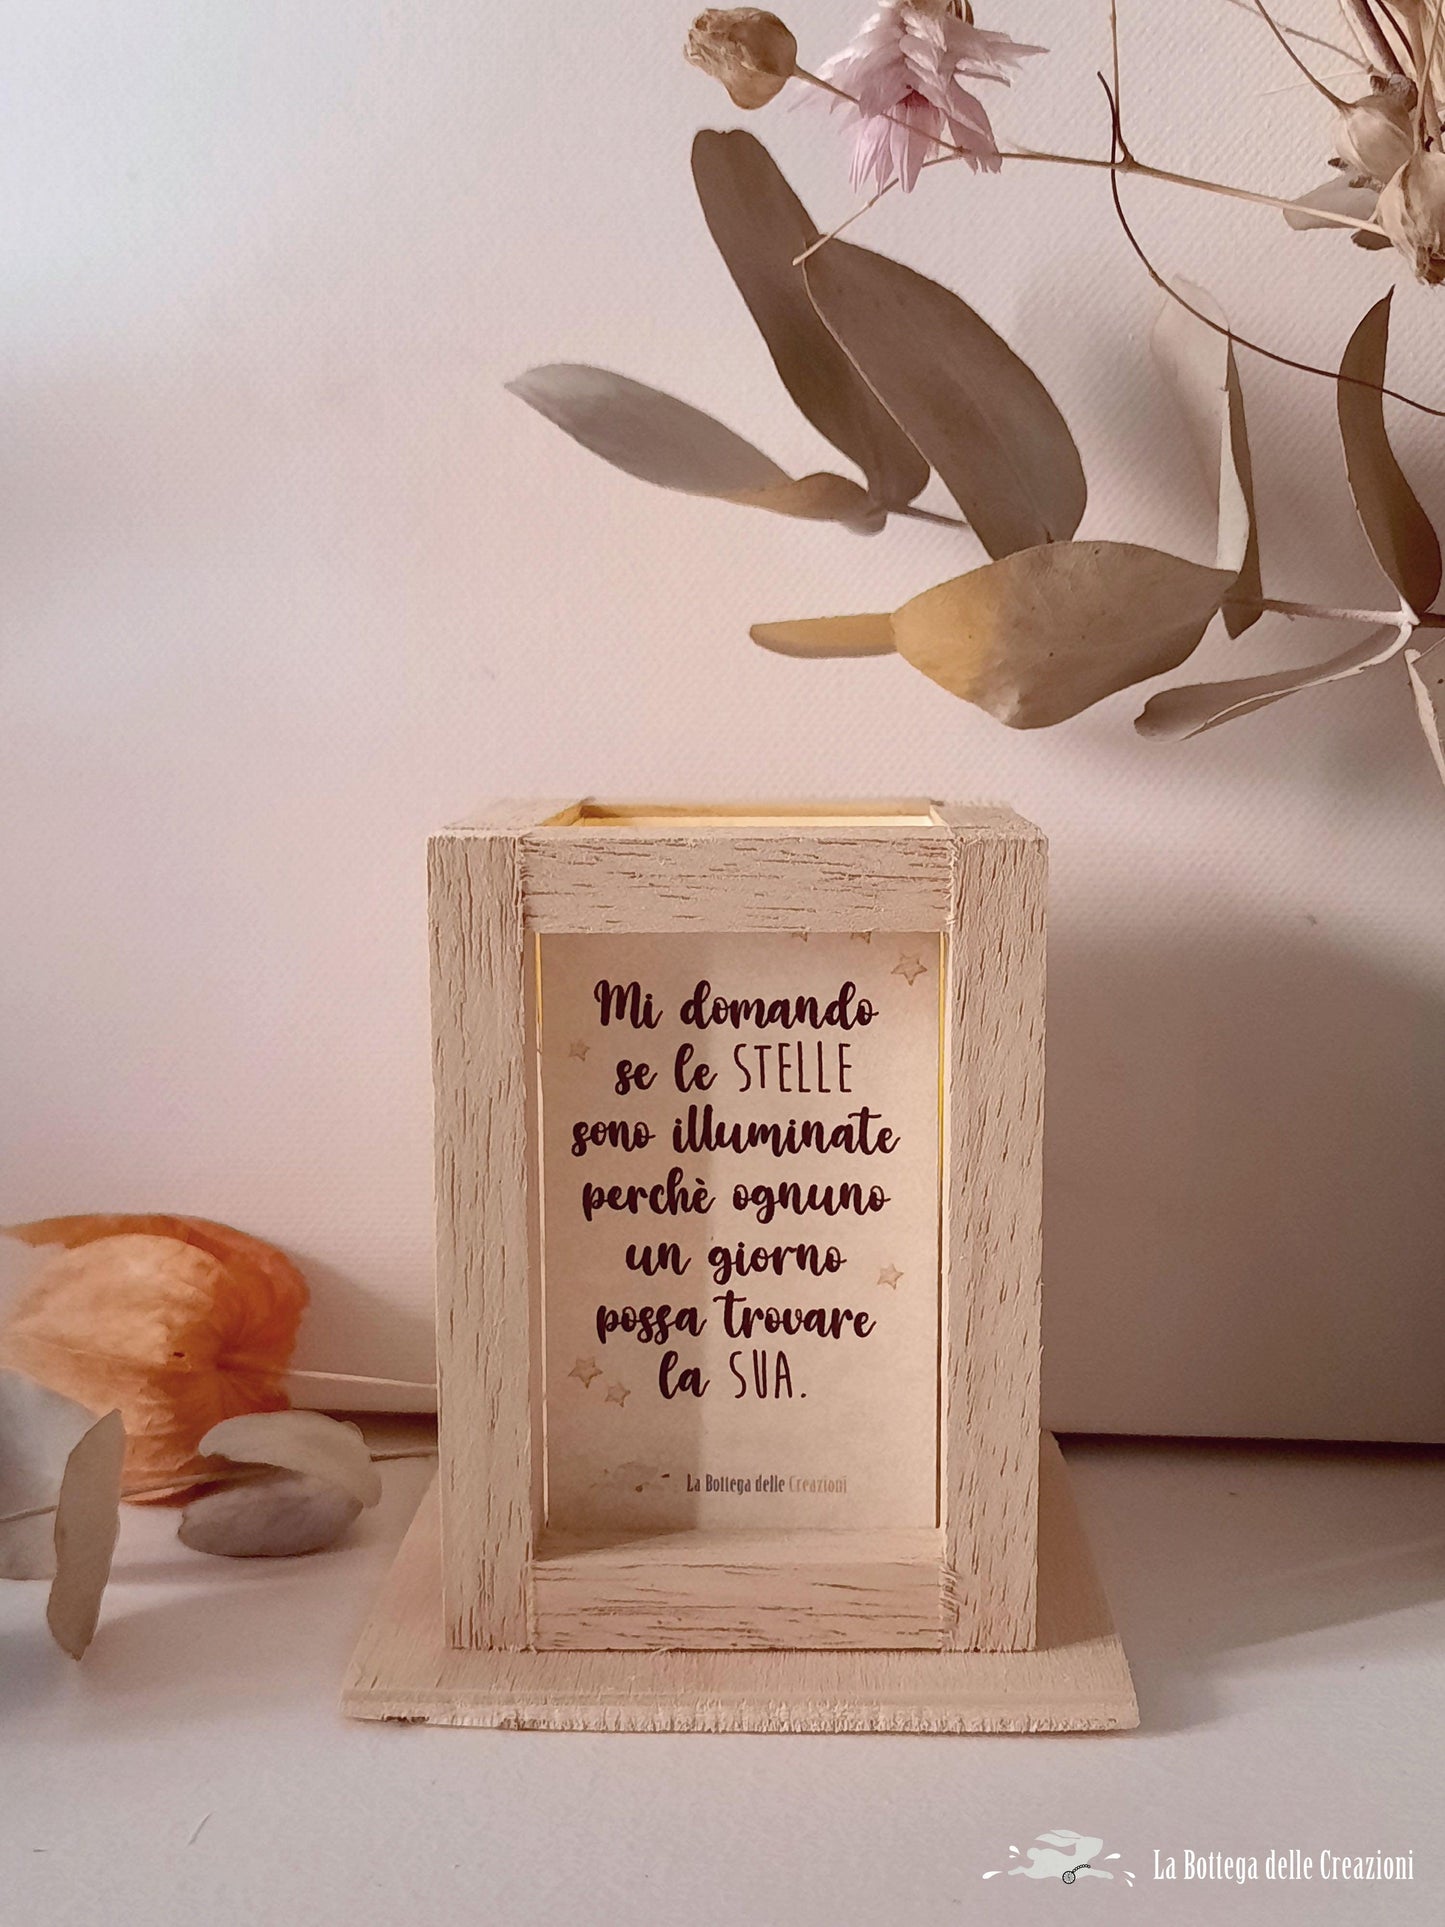 Mi domando
se le STELLE
sono illuminate
perchè ognuno
un giorno
possa trovare
la SUA.
La Bottega delle Creazioni
La Bottega delle Creazioni